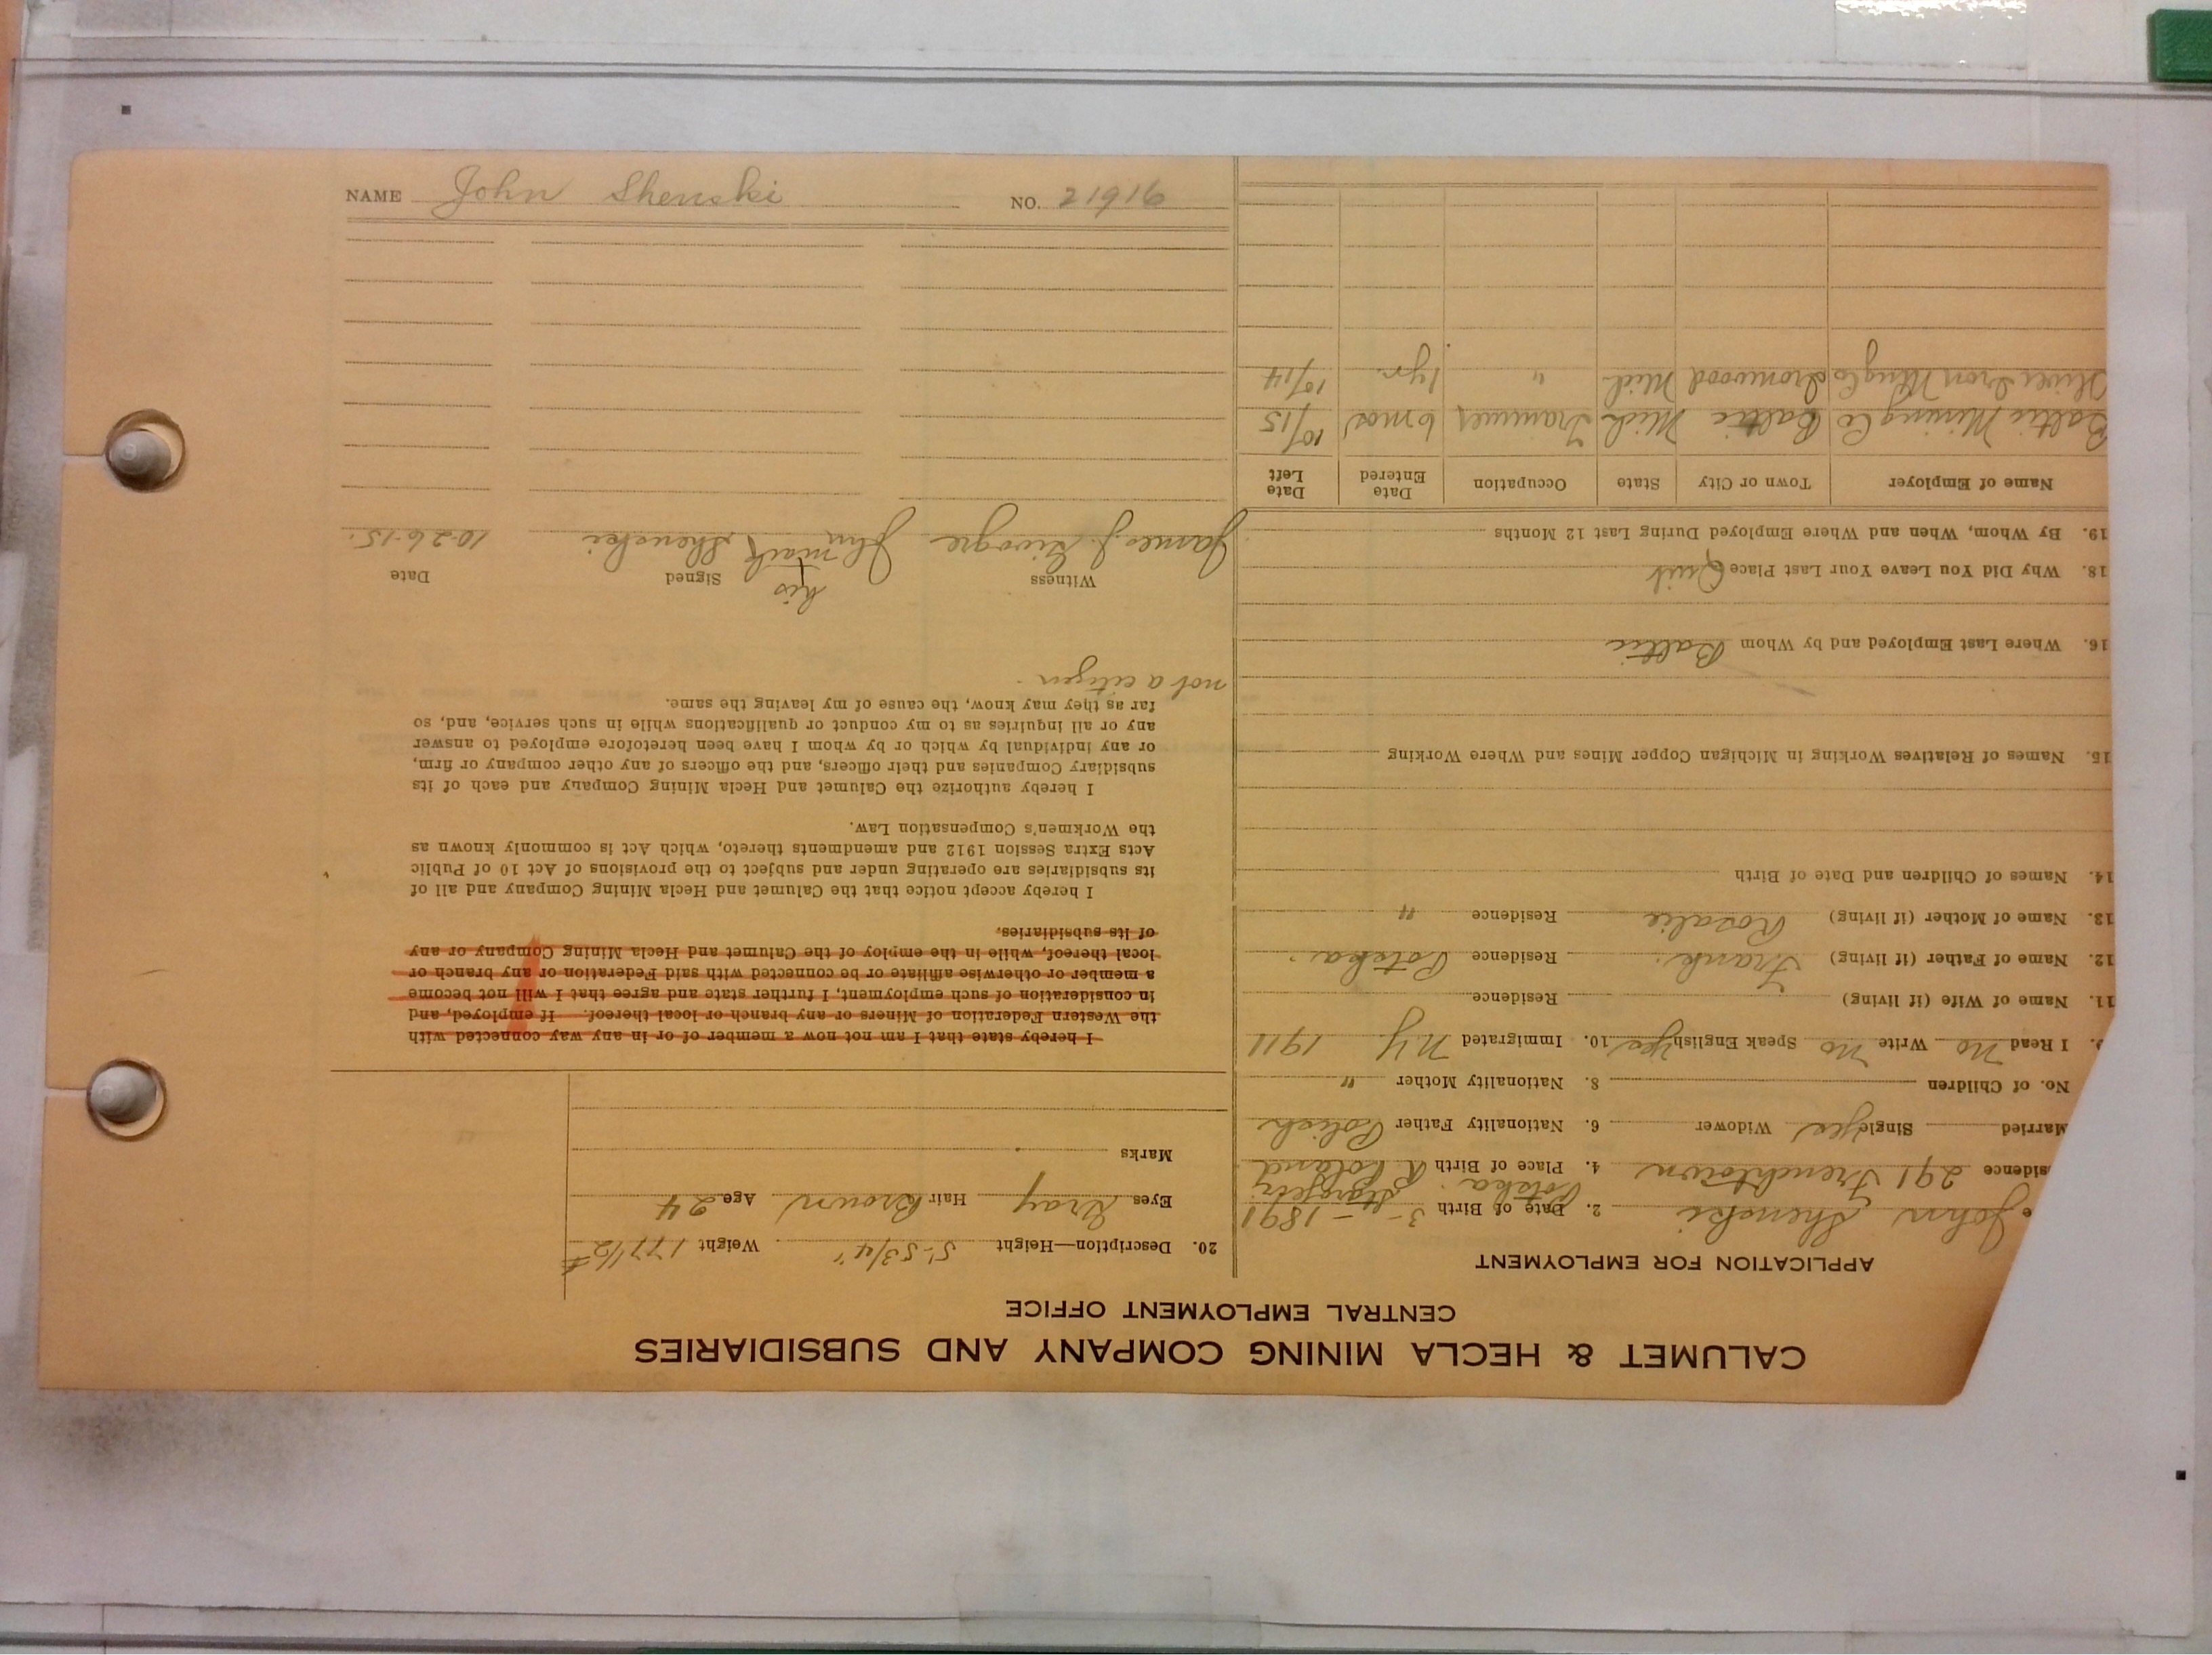 NAME John Shenski NO. 21916
CALUMET & HECLA MINING COMPANY AND SUBSIDIARIES
CENTRAL EMPLOYMENT OFFICE
APPLICATION FOR EMPLOYMENT
e John Shenski 2. Date of Birth 3-4-1891
sidence 291 Frenchtown 4. Place of Birth R. Poland
Married Single yes Widower 6. Nationality Father Polish
No. of Children 8. Nationality Mother "
9. I Read no Write no Speak English yes 10. Immigrated N.Y 1911
11. Name of Wife (if living) Residence
12. Name of Father (if living) Frank Residence
13. Name of Mother (if living) Rozalie Residence "
14. Names of Children and Date of Birth
15. Names of Relatives Working in Michigan Copper Mines and Where Working
16. Where Last Employed and by Whom Baltic
18. Why Did You Leave Your Last Place Quit
19. By Whom, When and Where Employed During Last 12 Months
Name of Employer Town or City State Occupation Date Entered Date Left
Baltic Mining Co Baltic Mich Trammer 6 mos 10/15
Oliver Iron Mng Co Ironwood Mich " 1 yr. 10/14
20. Description—Height 5'-5 3/4" Weight 177 1/2 #
Eyes Gray Hair Brown Age 24
Marks
I hereby state that I am not now a member of or in any way connected with
the Western Federation of Miners or any branch or local thereof. If employed, and
in consideration of such employment, I further state and agree that I will not become
a member or otherwise affiliate or be connected with said Federation or any branch or
local thereof, while in the employ of the Calumet and Hecla Mining Company or any
of its subsidiaries.
I hereby accept notice that the Calumet and Hecla Mining Company and all of
its subsidiaries are operating under and subject to the provisions of Act 10 of Public
Acts Extra Session 1912 and amendments thereto, which Act is commonly known as
the Workmen's Compensation Law.
I hereby authorize the Calumet and Hecla Mining Company and each of its
subsidiary Companies and their officers, and the officers of any other company or firm,
or any individual by which or by whom I have been heretofore employed to answer
any or all inquiries as to my conduct or qualifications while in such service, and, so
far as they may know, the cause of my leaving the same.
not a citizen.
Witness Signed Date
his
James J. John mark Shenski 10-26-15.